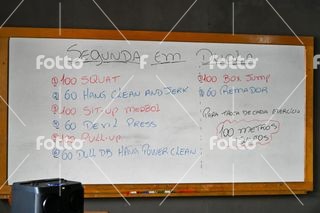 SEGUNDA EM DUPLA
100 SQUAT
60 HANG CLEAN AND JERK
100 SIT-UP MEDBOL
60 DEVIL PRESS
100 PULL-UP
60 DULL DB HANG POWER CLEAN
100 BOX JUMP
60 REMADOR
PARA TROCA DE CADA EXERCÍCIO
100 METROS
fotto
fotto
fotto
fotto
fotto
fotto